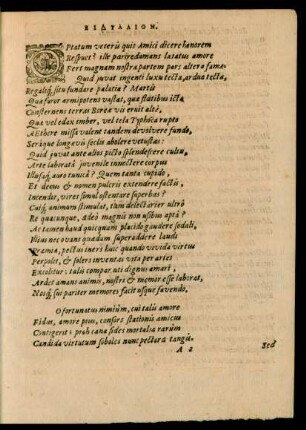 ΕΙΔΥΛΛΙΟΝ.
OPtatum veteris quis Amici dicere honorem
Respuet? ille pari redamans latatus amore
Fert magnam nostra partem pars altera fama.
Quid juvat ingenti luxu tecta, ardua tecta,
Regaliq́, situ fundare palatia? Martis
Qua furor armipotens vastat, qua flatibus icta
Consternere terras Borea vis ernit alta,
Qua vel edax imber, vel tela Typhoëa rupto
AEthere missa valent tandem devolvere fundo,
Seraque longavis seclis abolere vetustas:
Quid juvat ante alios picto splendescere cultu,
Arte laborata juvenile invectere corpus
Illusaq́, auro tunica? Quem tanta cupido,
Et decus & nomen pulcris extendere factis,
Intendit, vires simul ostentare superbas?
Cuiq́, animum stimulat, tum delectarier ultro
Re quacunque, adeo magnis non usibus apta?
Ac tamen haud quicquam placito gaudere sodali,
Huic nec ovans quadam superaddere laudi
Pramia, pectus iners huic quando vivida virtus
Perpolit, & solers inventas vita per artes
Excolitur: talis compar ni dignus amari,
Ardet amans animis, nostris & memor esse laborat,
Nosq́, sui pariter memores facit usque favendo.
O fortunatus nimium, cui talis amore
Fidus, amore pius, consors stationis amica
Contigerit: proh cana fides mortalia rarum
Candida virtutum soboles nunc pectora tangis.
A 2
Sed